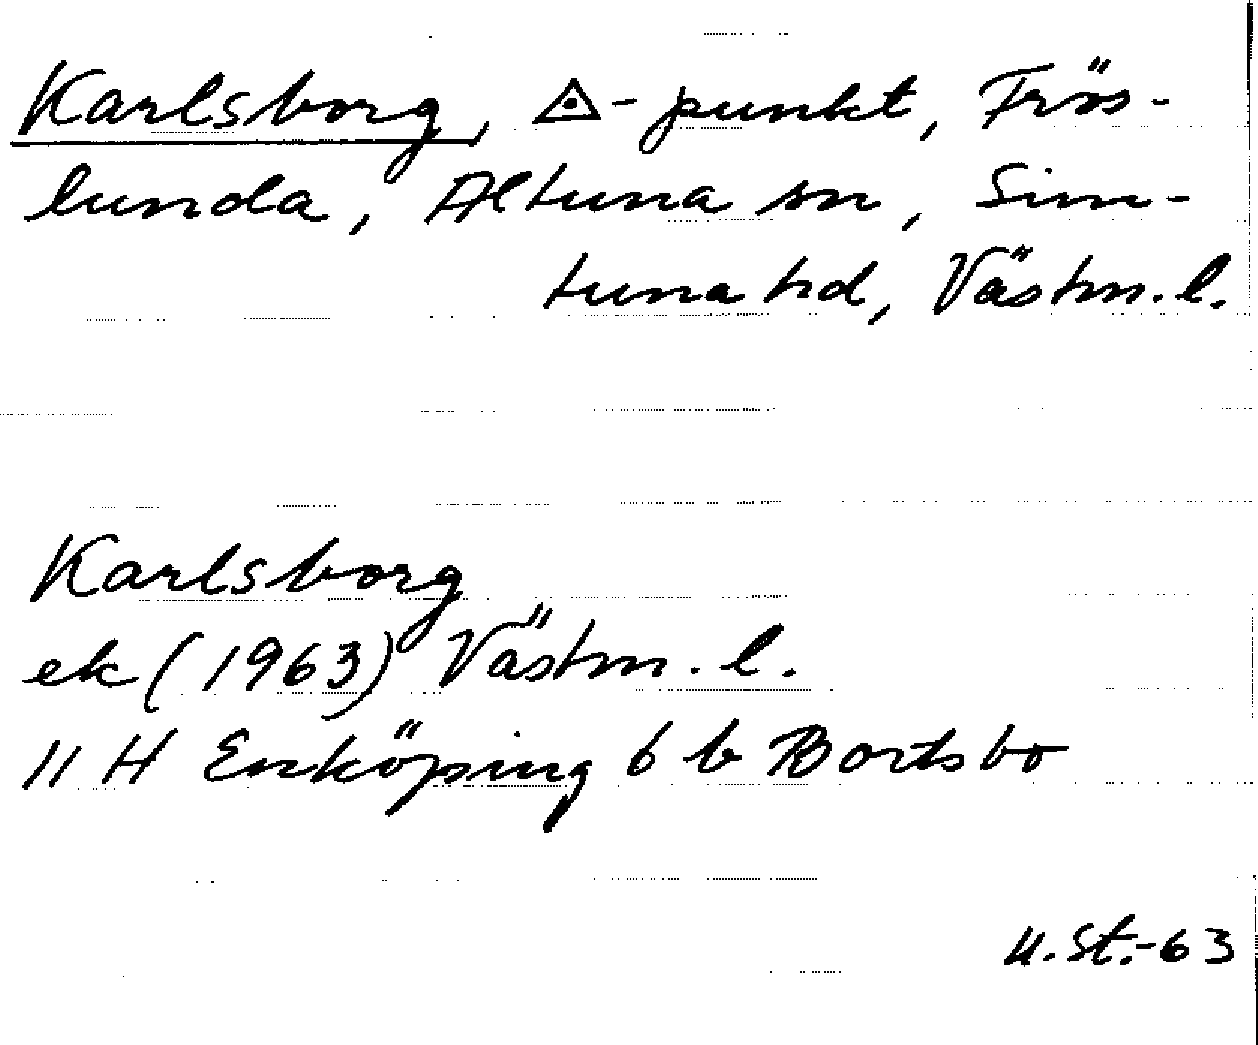 Karlsborg, △-punkt, Frös-
lunda, Altuna sn, Sim-
tuna hd, Västm. l.
Karlsborg
ek (1963) Västm. l.
11 H Enköping 6 b Bortsbo
U. St.-63